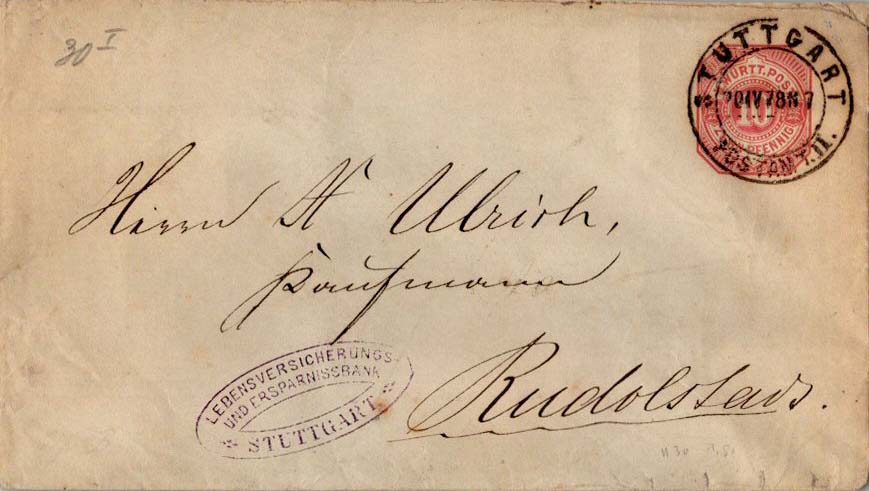 30 I
STUTTGART
20 IV 78 N 7
POSTAMT.II.
WÜRTT.POST
10
ZEHN PFENNIG
Herrn A Ulrich,
Kaufmann
Rudolstadt.
LEBENSVERSICHERUNGS-
UND ERSPARNISSBANK
STUTTGART